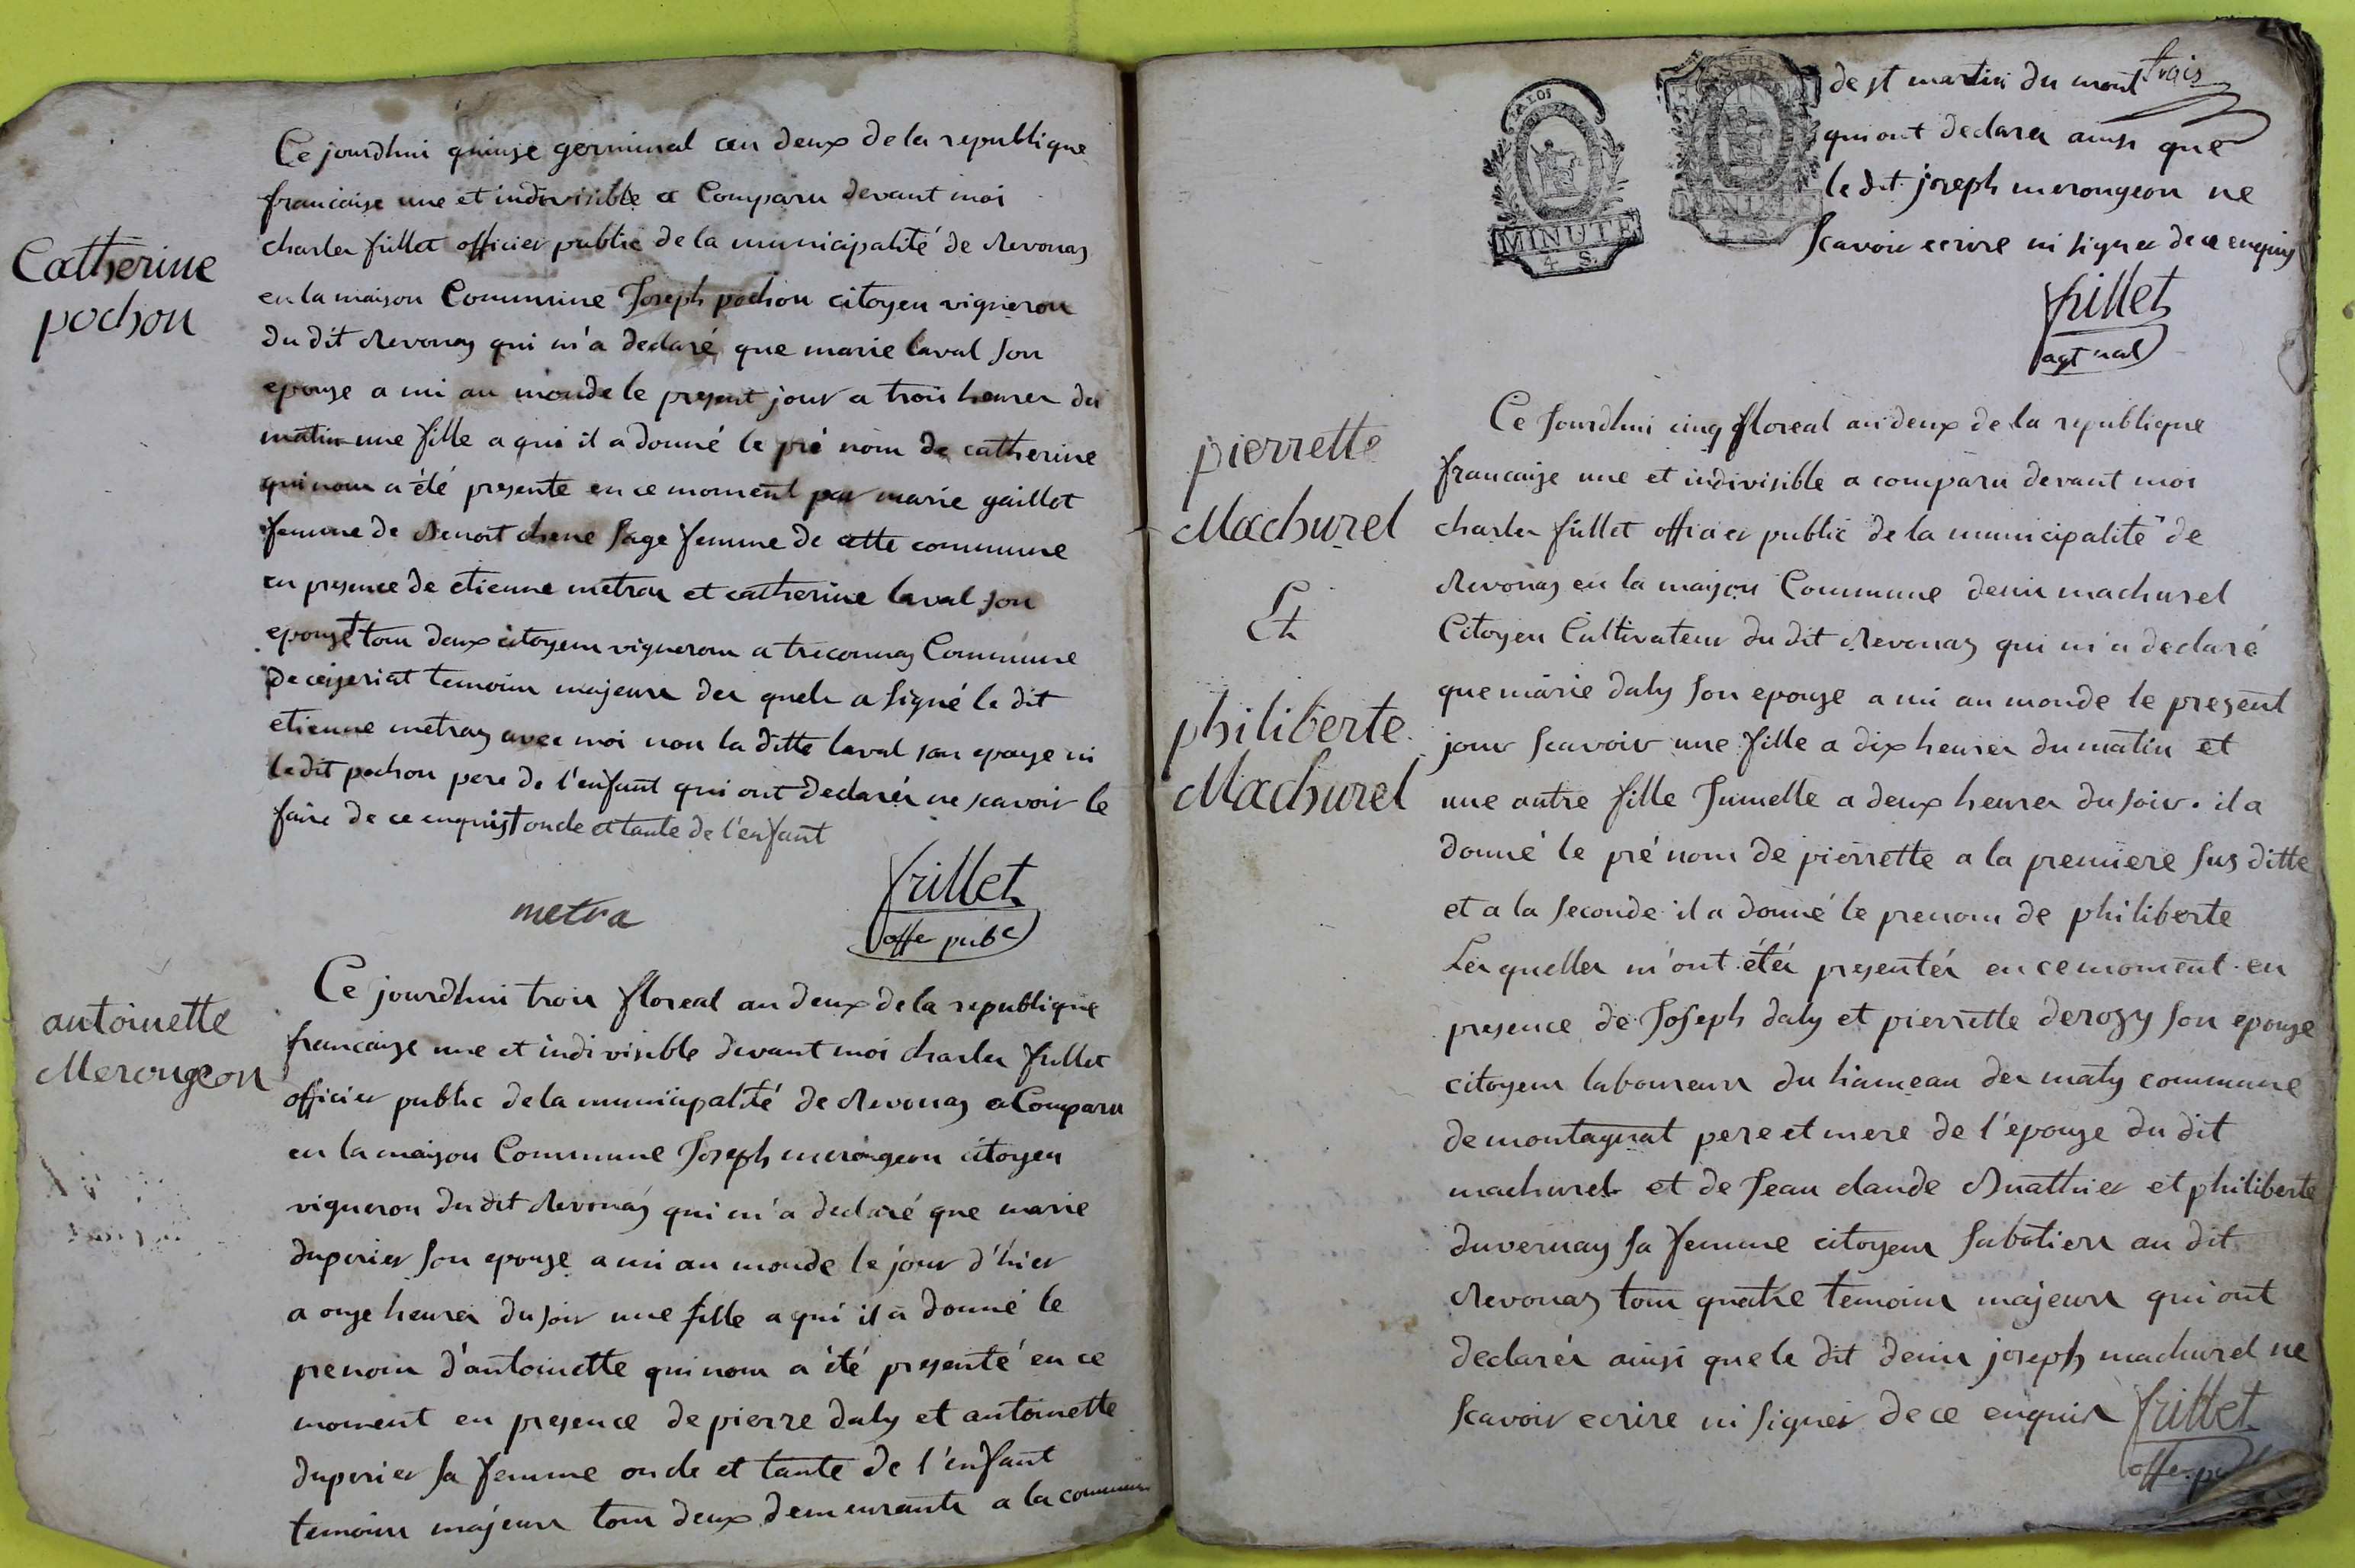 Catherine
pochon
Ce jourdhui quinze germinal an deux de la republique
francaise une et indivisible a Comparu devant moi
charles frillet officier public de la municipalité de Revonas
en la maison Commune Joseph pochon citoyen vigneron
du dit Revonas qui m'a declaré que marie laval son
epouze a mi au monde le present jour a trois heures du
matin une fille a qui il a donné le pré nom de catherine
qui nous a été presente en ce moment par marie gaillot
femme de Benoit chene sage femme de cette commune
en presence de etienne metras et catherine laval son
epouze + tous deux citoyens vignerons a treconnas Commune
De ceyzeriat temoins majeurs des quels a signé le dit
etienne metras avec moi non la ditte laval son epouze ni
le dit pochon pere de l'enfant qui ont declarés ne scavoir le
faire de ce enquis + oncle et tante de l'enfant
metra
frillet
offe pubc
antoinette
Merongeon
Ce jourdhui trois floreal an deux de la republique
francaize une et indivisible devant moi charles frillet
officier public de la municipalité de Revonas a Comparu
en la maizon Commune Joseph merongeon citoyen
vigneron du dit Revonas qui m'a declaré que marie
duperier son epouze a mi au monde le jour d'hier
a onze heures du soir une fille a qui il a donné le
prenom d'antoinette qui nous a été presenté en ce
moment en presence de pierre daly et antoinette
duperier sa femme oncle et tante de l'enfant
temoins majeurs tous deux demeurants a la commune
de st martin du mont frais
qui ont declarés ainsi que
le dit joseph merongeon ne
scavoir ecrire ni signer de ce enquis
MINUTE
4 S.
MINUTE
4 S.
frillet
agt nal
pierrette
Machurel
Et
philiberte
Machurel
Ce Jourdhui cinq floreal an deux de la republique
francaize une et indivisible a comparu devant moi
charles frillet officier public de la municipalité de
Revonas en la maizon Commune denis machurel
Citoyen Cultivateur du dit Revonas qui m'a declaré
que marie daly son epouze a mi au monde le prezent
jour scavoir une fille a dix heures du matin et
une autre fille Jumelle a deux heures du soir. il a
donné le pré nom de pierrette a la premiere sus ditte
et a la seconde il a donné le prenom de philiberte
Les quelles m'ont étés presentés en ce moment en
presence de Joseph daly et pierrette derozy son epouze
citoyens laboureurs du hameau des maty commune
de montagnat pere et mere de l'épouze du dit
machurel et de Jean claude Buathier et philiberte
duvernay sa femme citoyens sabotiers au dit
Revonas tous quatre temoins majeurs qui ont
declarés ainsi que le dit denis joseph machurel ne
scavoir ecrire ni signer de ce enquis frillet
offe. pu